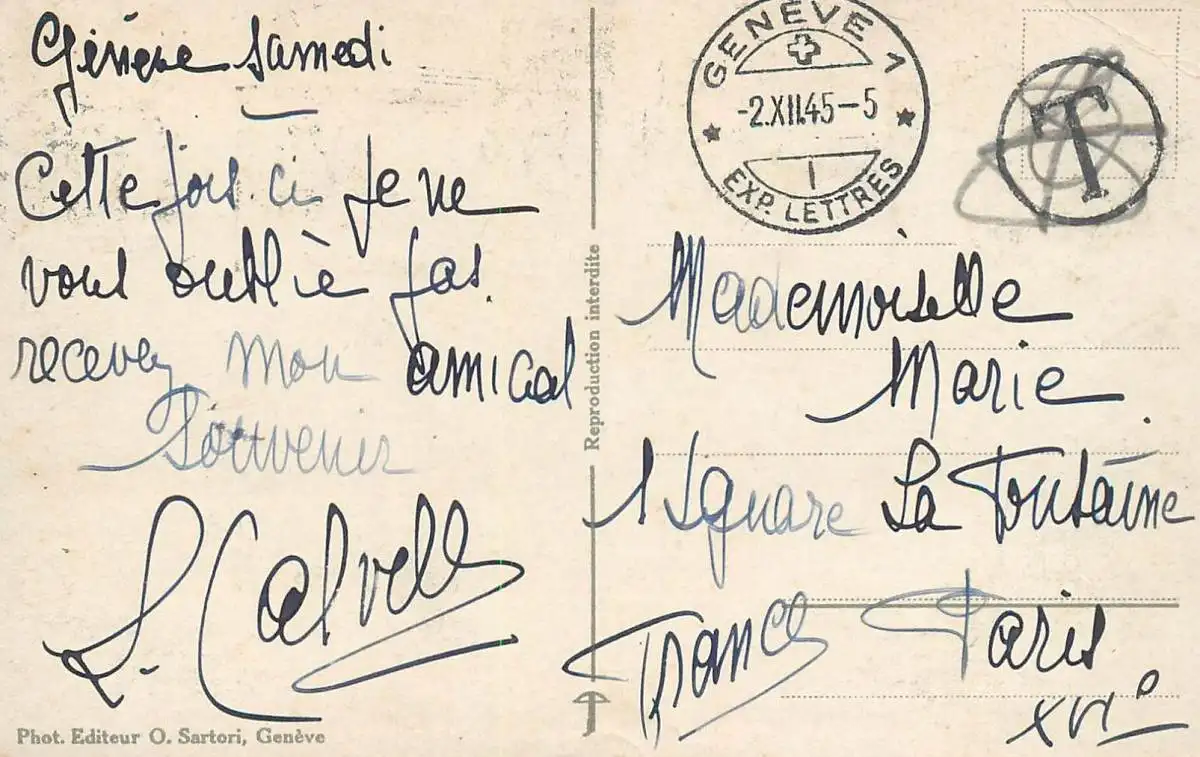 Génève Samedi
Cette fois. ci je ne
vous oublie pas.
recevez mon amical
Souvenir
Phot. Editeur O. Sartori, Genève
Reproduction interdite
GENÈVE 1
-2.XII.45-5
EXP. LETTRES
T
Mademoiselle
Marie
1 Square La Fontaine
Paris
France
XVIe